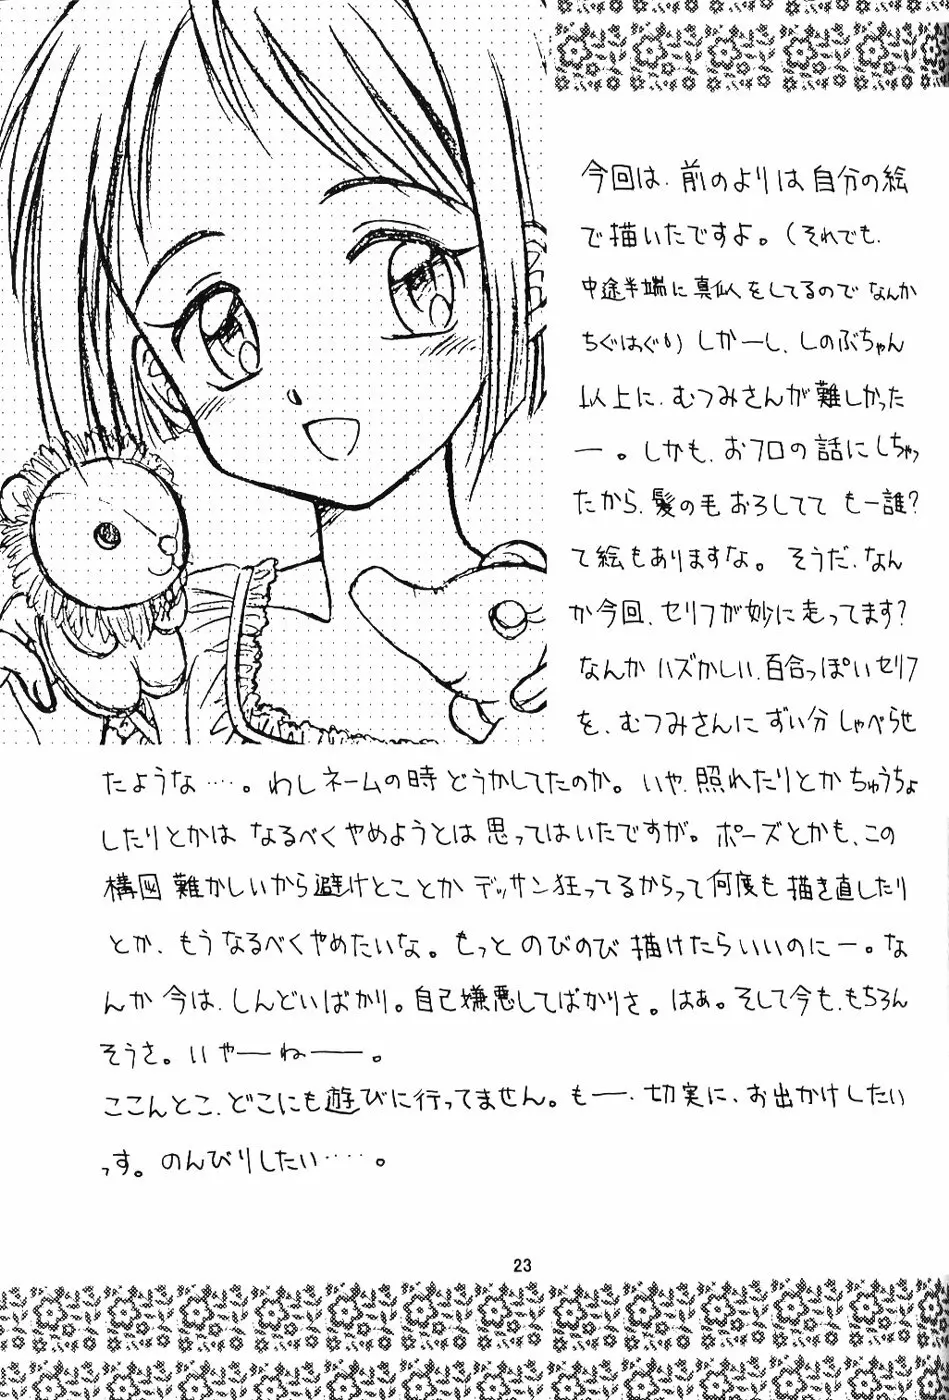 今回は、前のよりは自分の絵
で描いたですよ。(それでも、
中途半端に真似をしてるので なんか
ちぐはぐい) しかーし、しのぶちゃん
以上に、むつみさんが難しかった
ー。しかも、おフロの話にしちゃっ
たから、髪の毛おろしてて もー誰?
て絵もありますな。そうだ、なん
か今回、セリフが妙に走ってます?
なんか ハズかしい、百合っぽいセリフ
を、むつみさんに ずい分 しゃべらせ
たような‥‥。わしネームの時 どうかしてたのか。いや、照れたりとか ちゅうちょ
したりとかは なるべく やめようとは 思ってはいたですが。ポーズとかも、この
構図 難かしいから避けとことか デッサン狂ってるからって何度も 描き直したり
とか、もう なるべくやめたいな。もっと のびのび 描けたらいいのにー。な
んか 今は、しんどいばかり。自己嫌悪してばかりさ。はぁ。そして今も、もちろん
そうさ。いやーねー。
ここんとこ、どこにも遊びに行ってません。もー、切実に、お出かけしたい
っす。のんびりしたい‥‥。
23